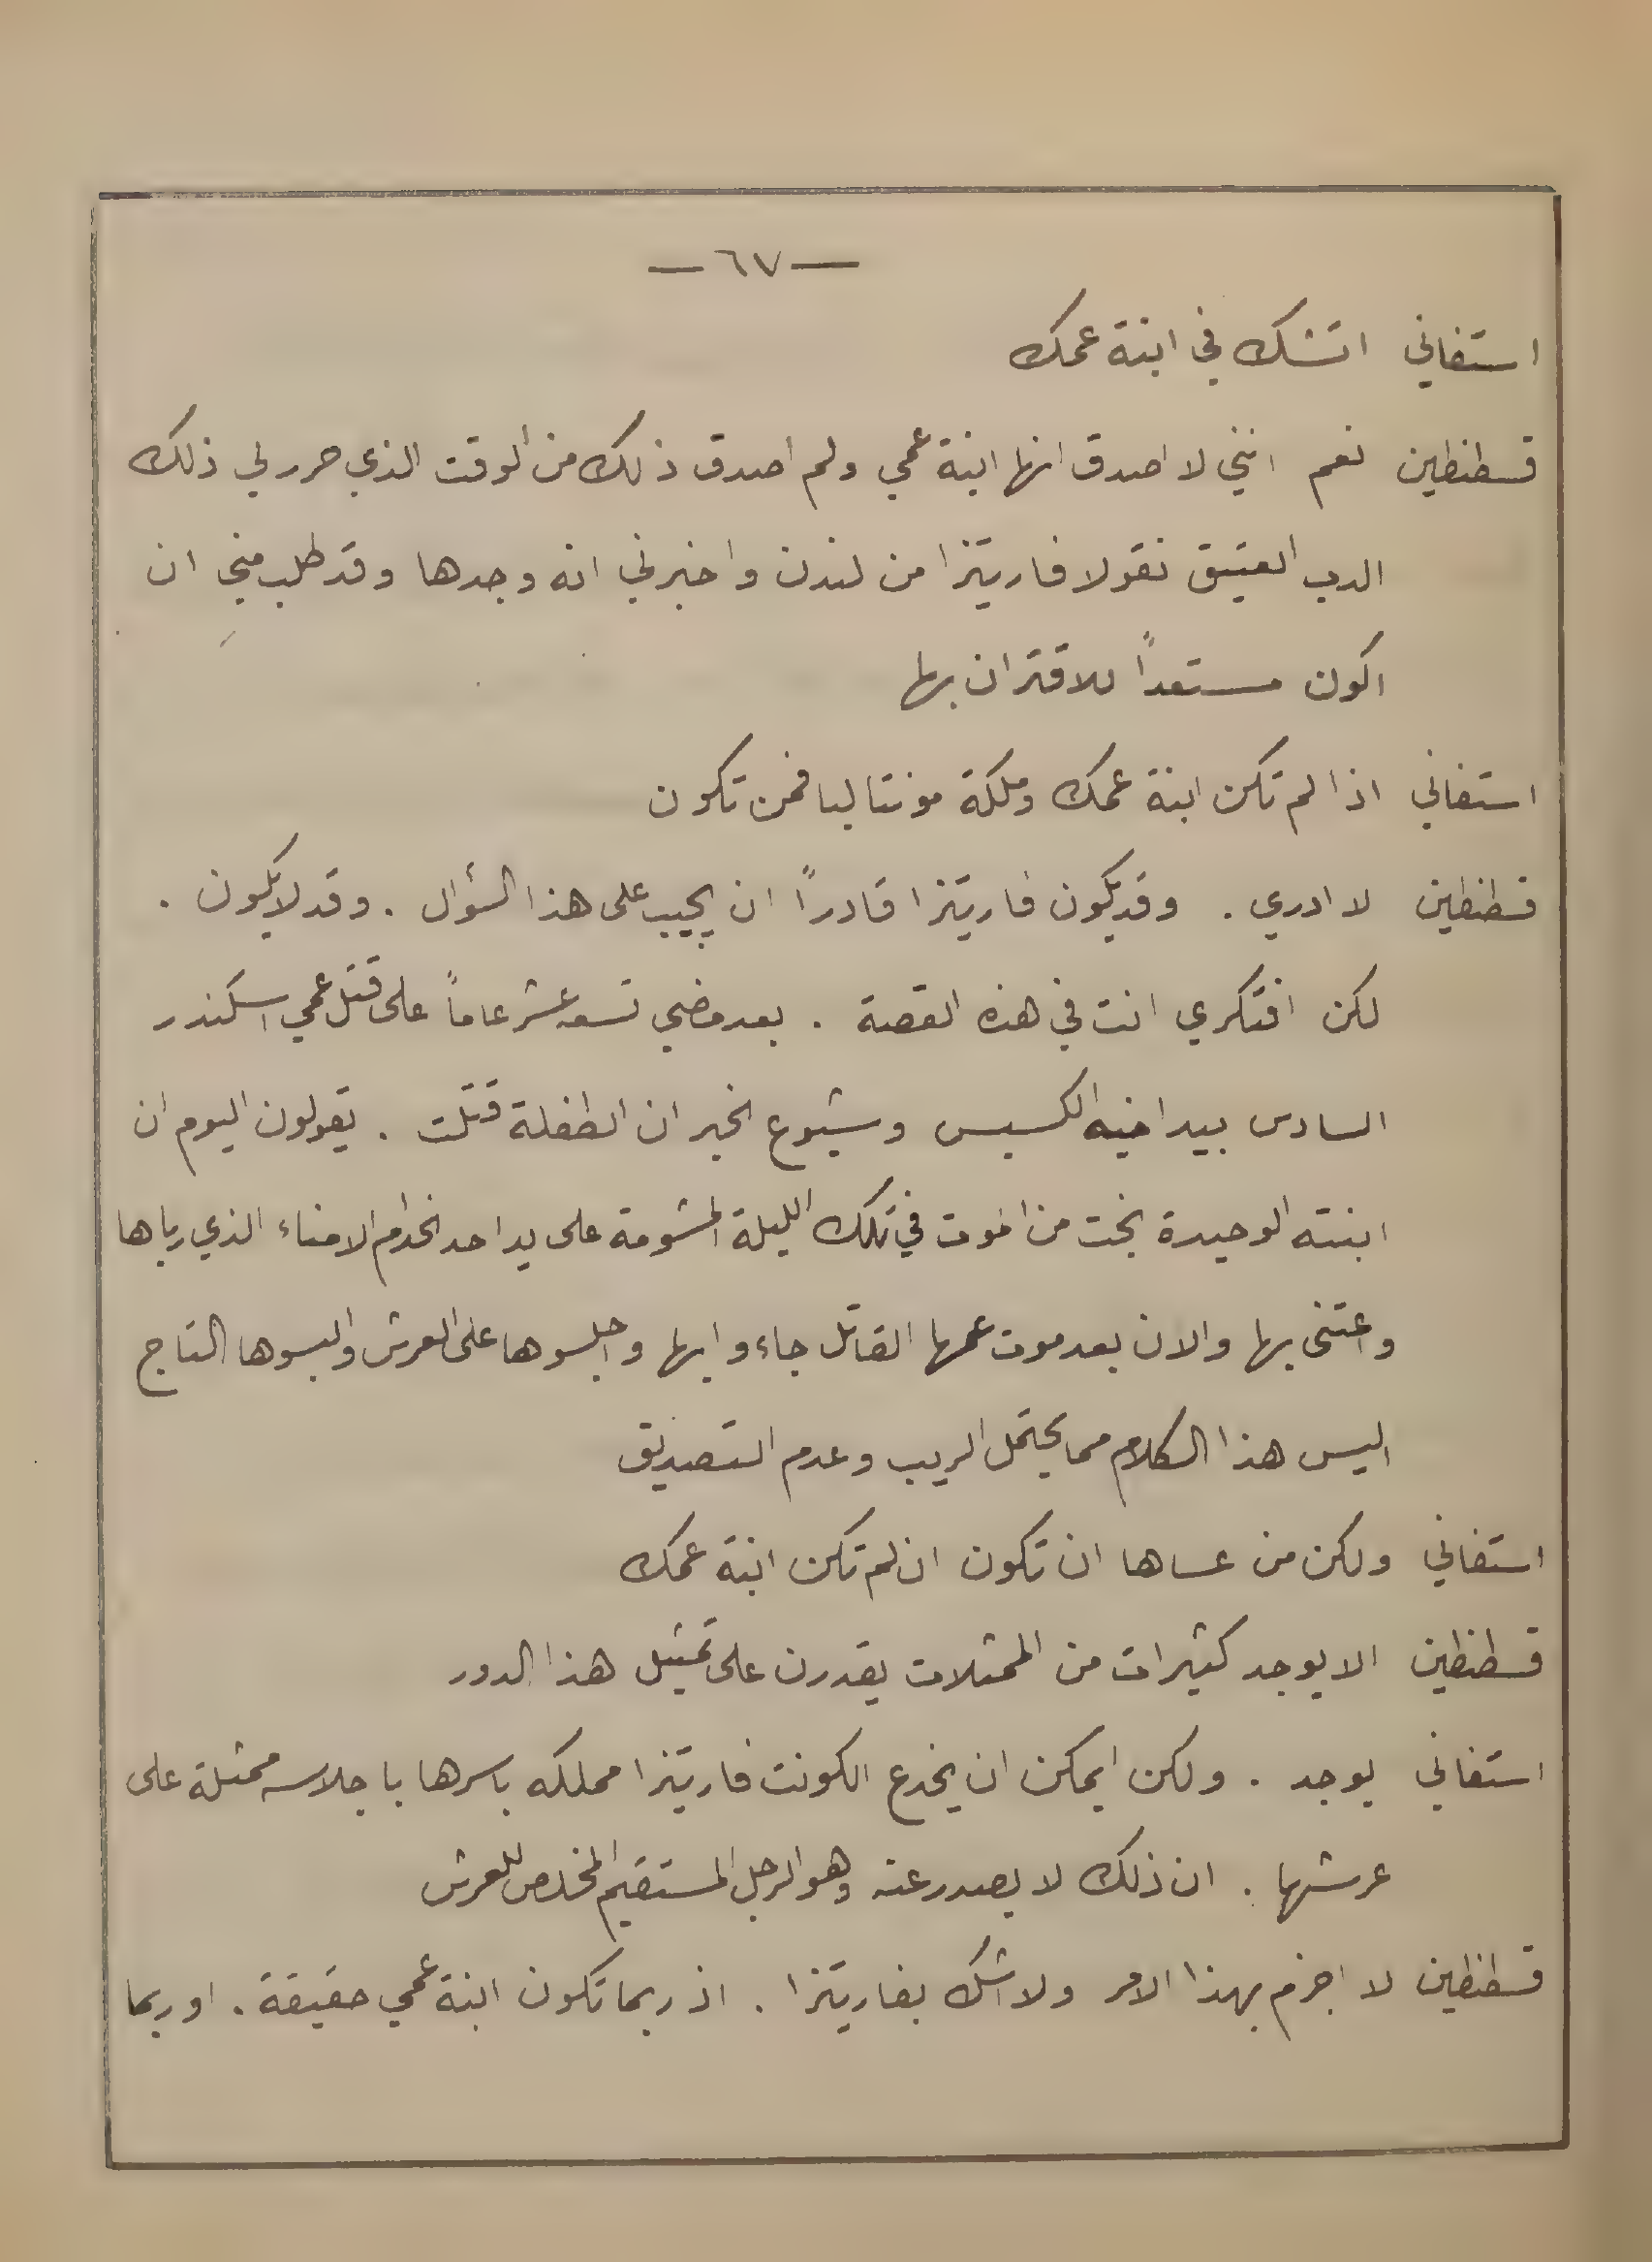 — ٦٧ —
استفاني اتشك في ابنة عمك
قسطنطين نعم انني لا اصدق انها ابنة عمي ولم اصدق ذلك من الوقت الذي حرر لي ذلك
الدب العتيق نقولا فاريتزا من لندن واخبرني انه وجدها وقد طلب مني ان
اكون مستعداً للاقتران بها
استفاني اذا لم تكن ابنة عمك وملكة مونتاليا فمن تكون
قسطنطين لا ادري . وقد يكون فاريتزا قادراً ان يجيب على هذا السؤال . وقد لا يكون .
لكن افتكري انت في هذه القصة . بعد مضي تسعة عشر عاماً على قتل عمي اسكندر
السادس بيد اخيه الكسيس وشيوع الخبر ان الطفلة قتلت . يقولون اليوم ان
ابنته الوحيدة نجت من الموت في تلك الليلة المشومة على يد احد الخدام الامناء الذي رباها
واعتنى بها والان بعد موت عمها القاتل جاءوا بها واجلسوها على العرش والبسوها التاج
اليس هذا الكلام مما يحتمل الريب وعدم التصديق
استفاني ولكن من عساها ان تكون ان لم تكن ابنة عمك
قسطنطين الا يوجد كثيرات من الممثلات يقدرن على تمثيل هذا الدور
استفاني يوجد . ولكن ايمكن ان يخدع الكونت فاريتزا مملكه باسرها باجلاسه ممثلة على
عرشها . ان ذلك لا يصدر عنه وهو الرجل المستقيم المخلص للعرش
قسطنطين لا اجزم بهذا الامر ولا اشك بفاريتزا . اذ ربما تكون ابنة عمي حقيقة . او ربما